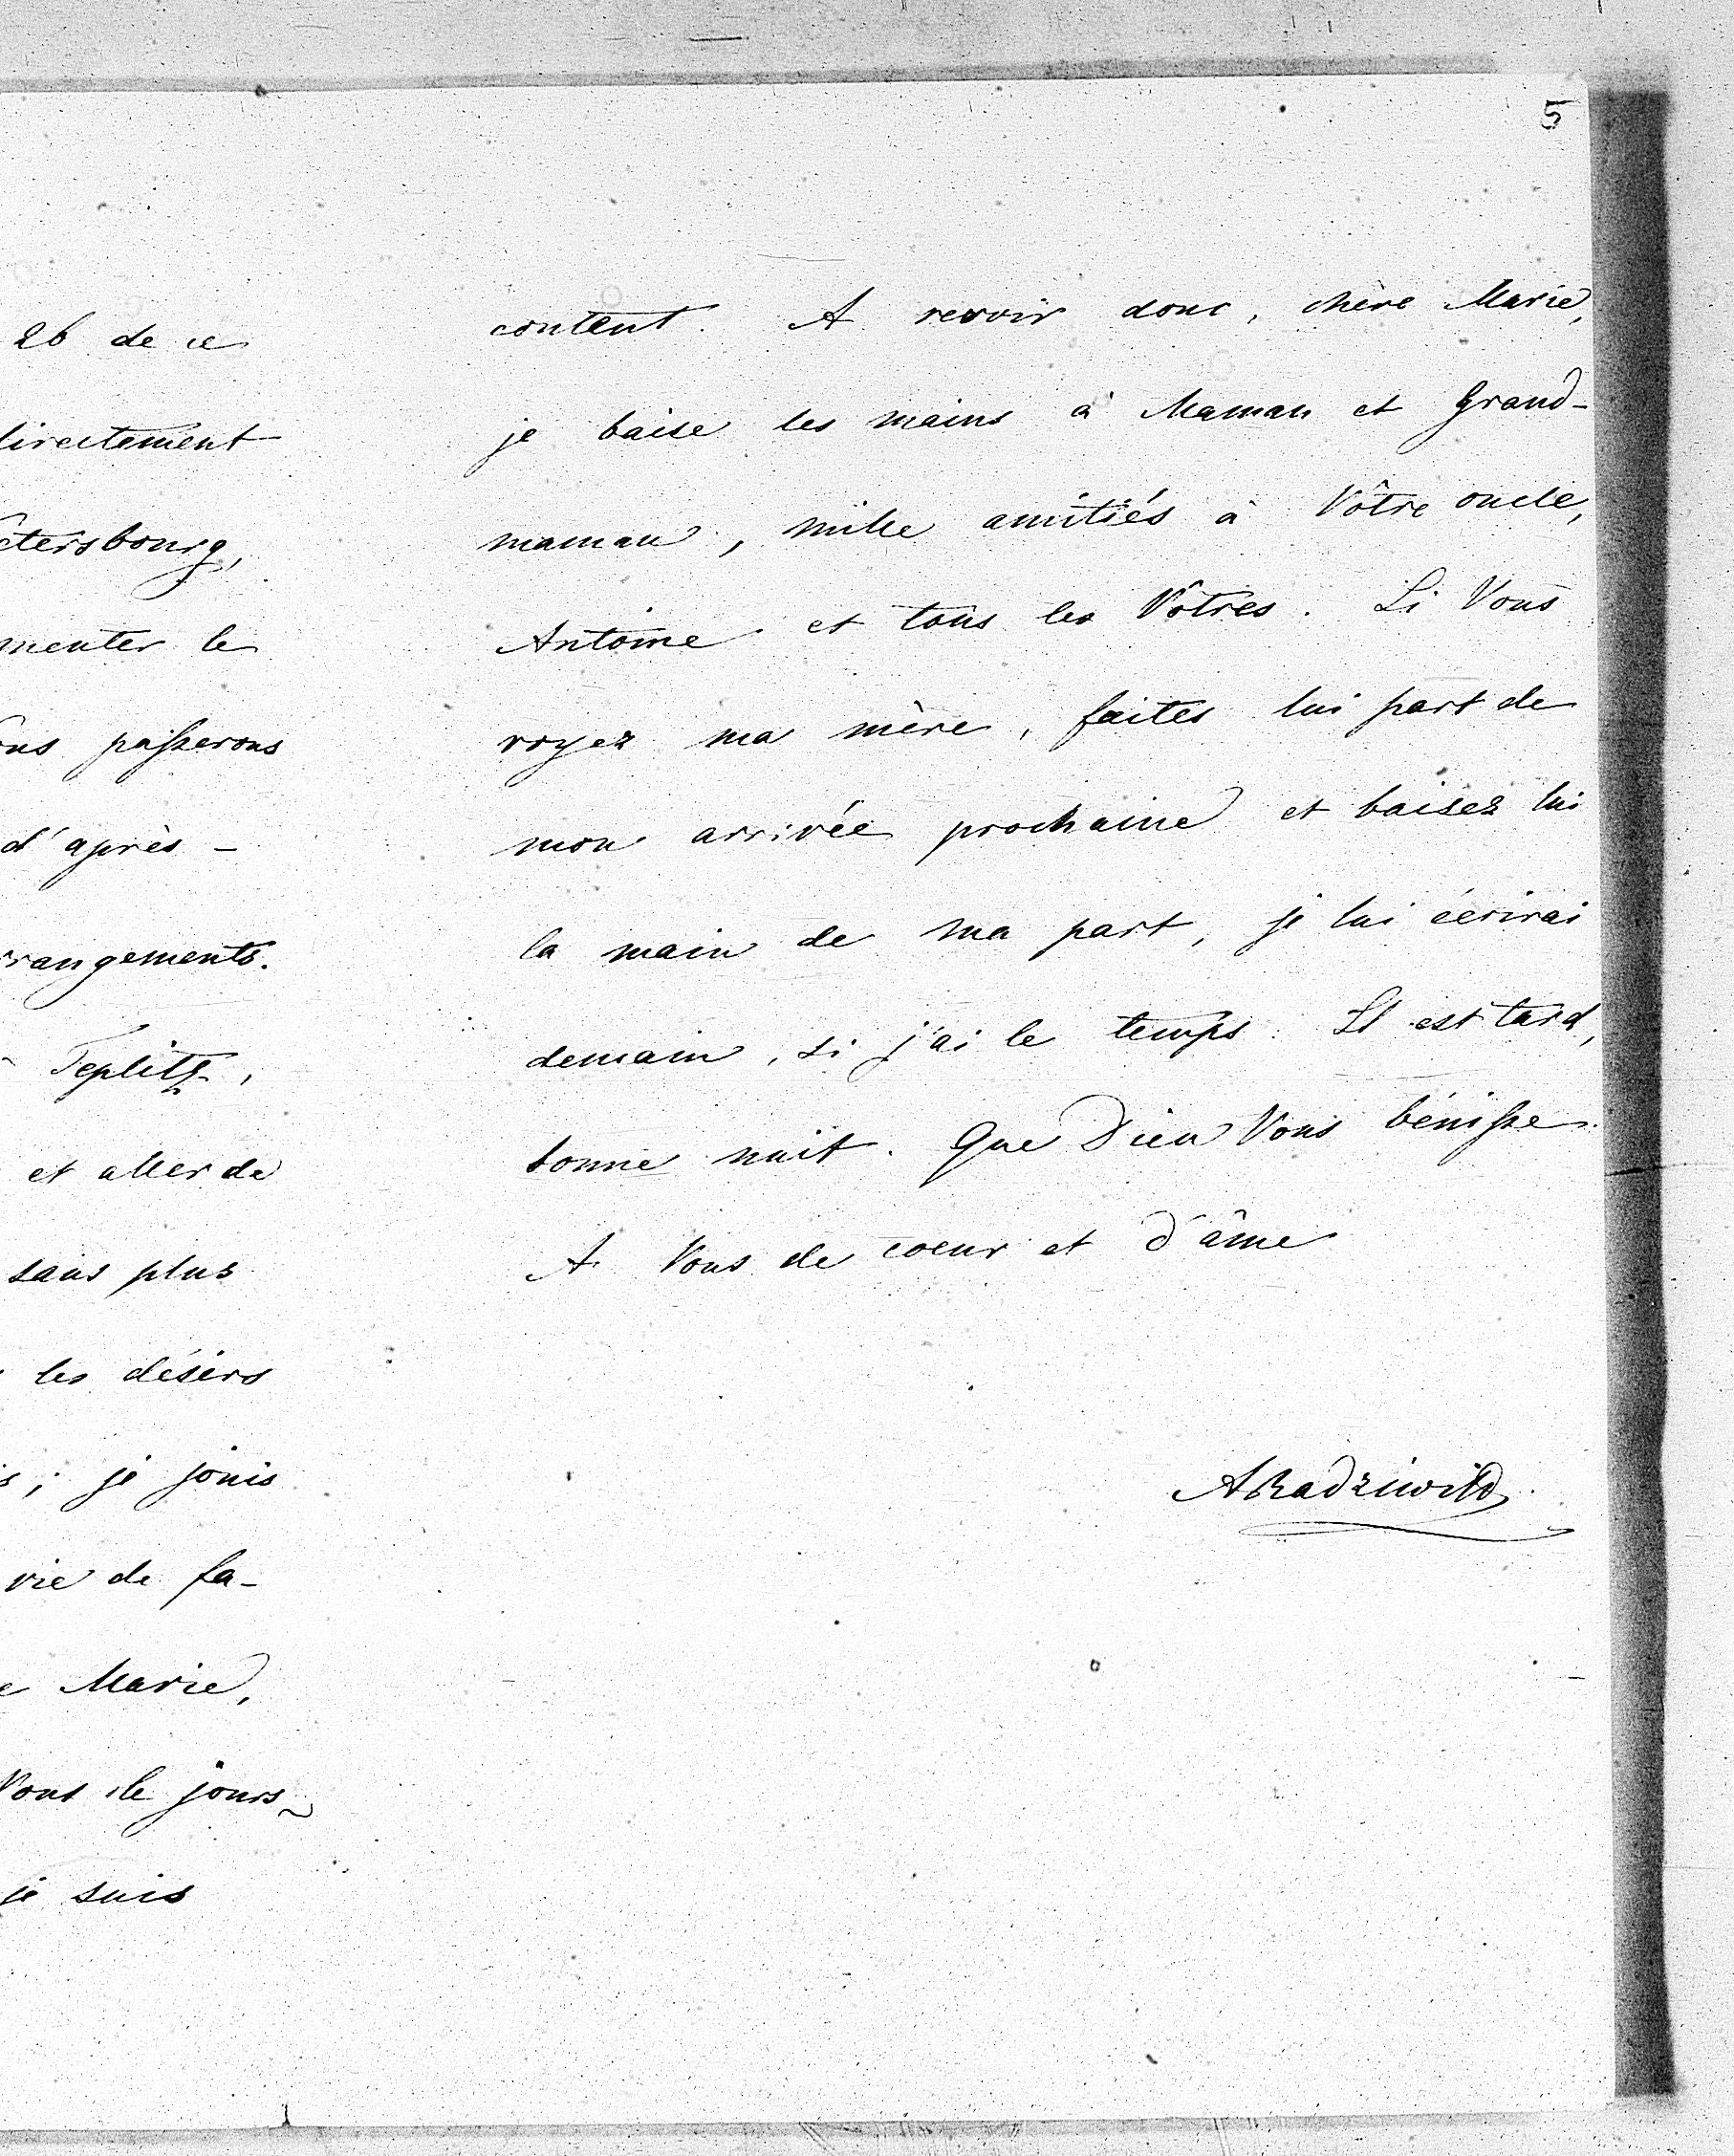 5
26 de ce
directement
etersbourg,
menter le
ous passerons
d'après-
rrangements.
Teplitz,
et aller de
sans plus
les désirs
s; je jouis
vie de fa-
e Marie,
Vous de jours
je suis
content. A revoir donc, chère Marie,
je baise les mains à Maman et Grand-
maman, mille amitiés à Vôtre oncle,
Antoine et tous les Vôtres. Si Vous
voyez ma mère, faites lui part de
mon arrivée prochaine et baisez lui
la main de ma part, je lui écrirai
demain, si j'ai le temps. Il est tard,
bonne nuit. Que Dieu Vous bénisse.
A Vous de coeur et d'âme
ARadziwill